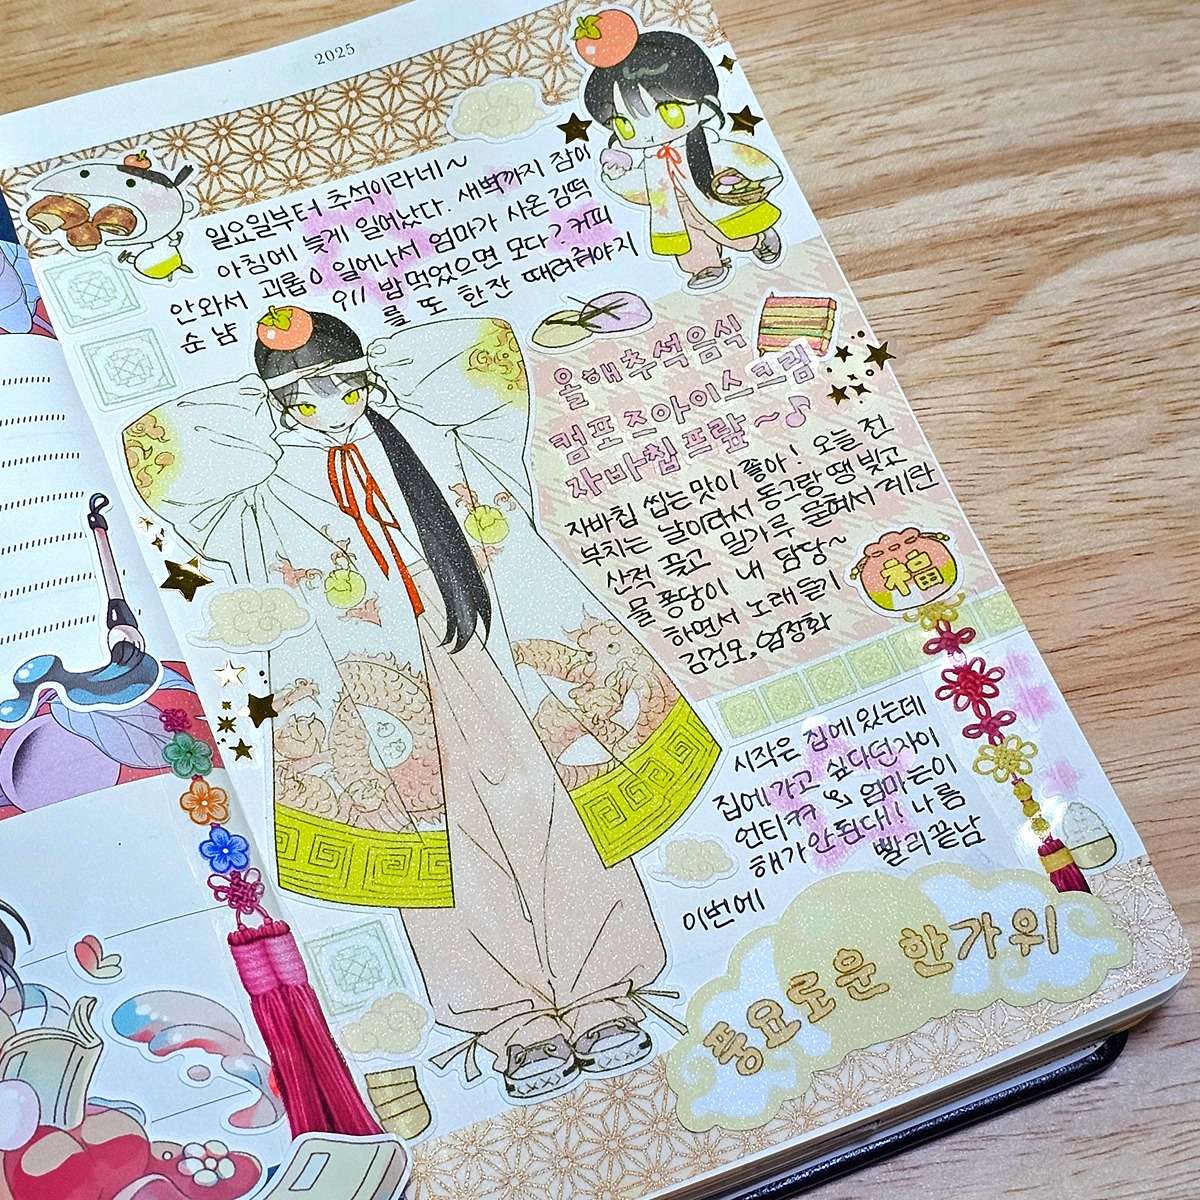 2025
일요일부터 추석이라네~
아침에 늦게 일어났다. 새벽까지 잠이
안와서 괴롭 일어나서 엄마가 사온 김떡
순 냠 밥먹었으면 모다? 커피
를 또 한잔 때려줘야지
올해추석음식
컴포즈아이스크림
자바칩프랖~♪
자바칩 씹는맛이 좋아! 오늘 전
부치는 날이라서 동그랑땡 빚고
산적 꽂고 밀가루 묻혀서 계란
물 퐁당이 내 담당~
하면서 노래듣기
김건모, 엄정화
福
시작은 집에있는데
집에가고 싶다던자이
언티ㅋㅋ 엄마는이
해가안된대! 나름
빨리끝남
이번에
풍요로운 한가위